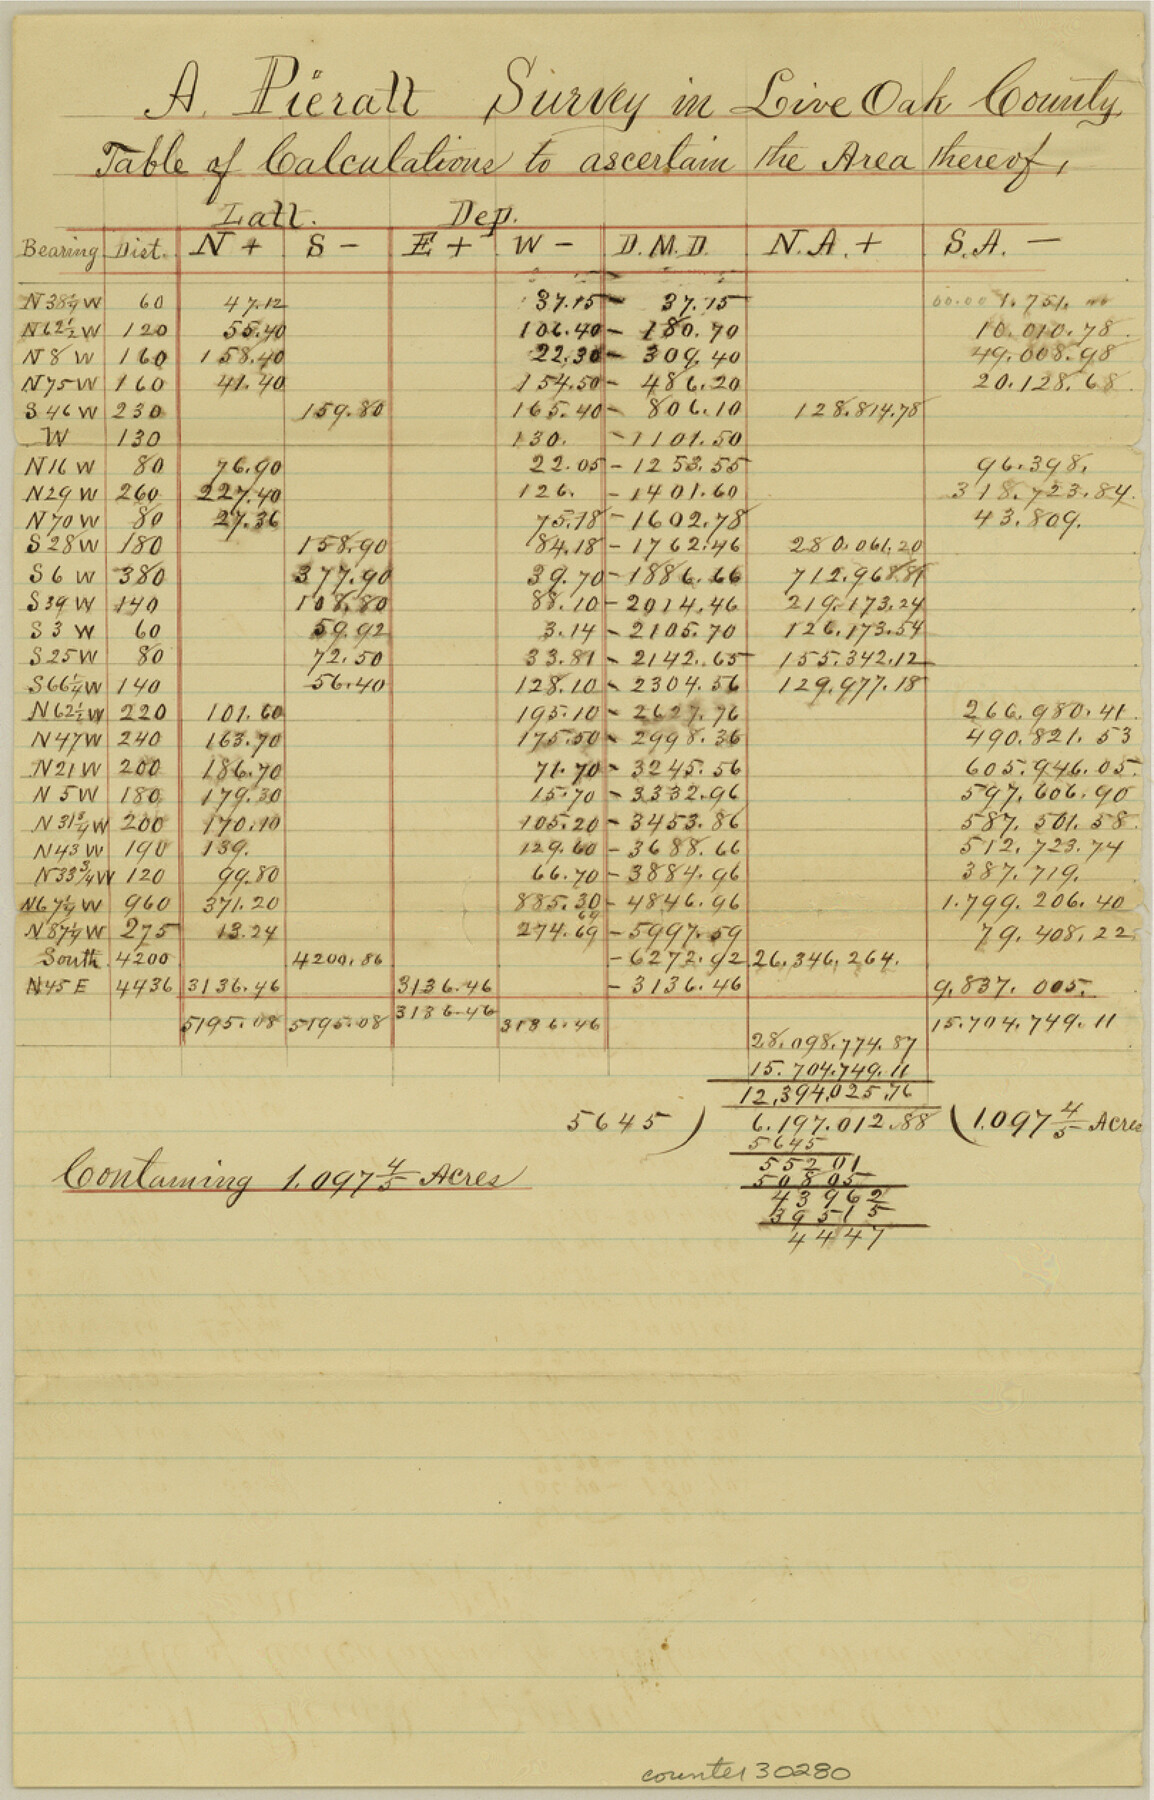 A. Pieratt Survey in Live Oak County,
Table of Calculations to ascertain the Area thereof,
Latt. Dep.
Bearing Dist. N + S - E + W - D.M.D. N.A. + S.A. -
N 38¼ W 60 47.12 37.15 - 37.15 1.751.
N 62½ W 120 55.40 106.40 - 180.70 10.010.78
N 8 W 160 158.40 22.30 - 309.40 49.008.98
N 75 W 160 41.40 154.50 - 486.20 20.128.68
S 46 W 230 159.80 165.40 - 806.10 128.814.78
W 130 130. - 1101.50
N 16 W 80 76.90 22.05 - 1253.55 96.398.
N 29 W 260 227.40 126. - 1401.60 318.723.84
N 70 W 80 27.36 75.18 - 1602.78 43.809.
S 28 W 180 158.90 84.18 - 1762.46 280.061.20
S 6 W 380 377.90 39.70 - 1886.66 712.968.81
S 39 W 140 108.80 88.10 - 2014.46 219.173.24
S 3 W 60 59.92 3.14 - 2105.70 126.173.54
S 25 W 80 72.50 33.81 - 2142.65 155.342.12
S 66¼ W 140 56.40 128.10 - 2304.56 129.977.18
N 62½ W 220 101.60 195.10 - 2627.76 266.980.41
N 47 W 240 163.70 175.50 - 2998.36 490.821.53
N 21 W 200 186.70 71.70 - 3245.56 605.946.05
N 5 W 180 179.30 15.70 - 3332.96 597.606.90
N 31¾ W 200 170.10 105.20 - 3453.86 587.501.58
N 43 W 190 139. 129.60 - 3688.66 512.723.74
N 33¾ W 120 99.80 66.70 - 3884.96 387.719.
N 67¼ W 960 371.20 885.30 - 4846.96 1.799.206.40
N 87¼ W 275 13.24 274.69 - 5997.59 79.408.22
South 4200 4200.86 - 6272.92 26.346.264.
N 45 E 4436 3136.46 3136.46 - 3136.46 9.837.005.
5195.08 5195.08 3136.46 3136.46 15.704.749.11
28.098.774.87
15.704.749.11
12,394,025.76
5645 ) 6.197.012.88 ( 1.097 4/5 Acres
5645
55201
50805
43962
39515
4447
Containing 1.097 4/5 Acres
counter 30280